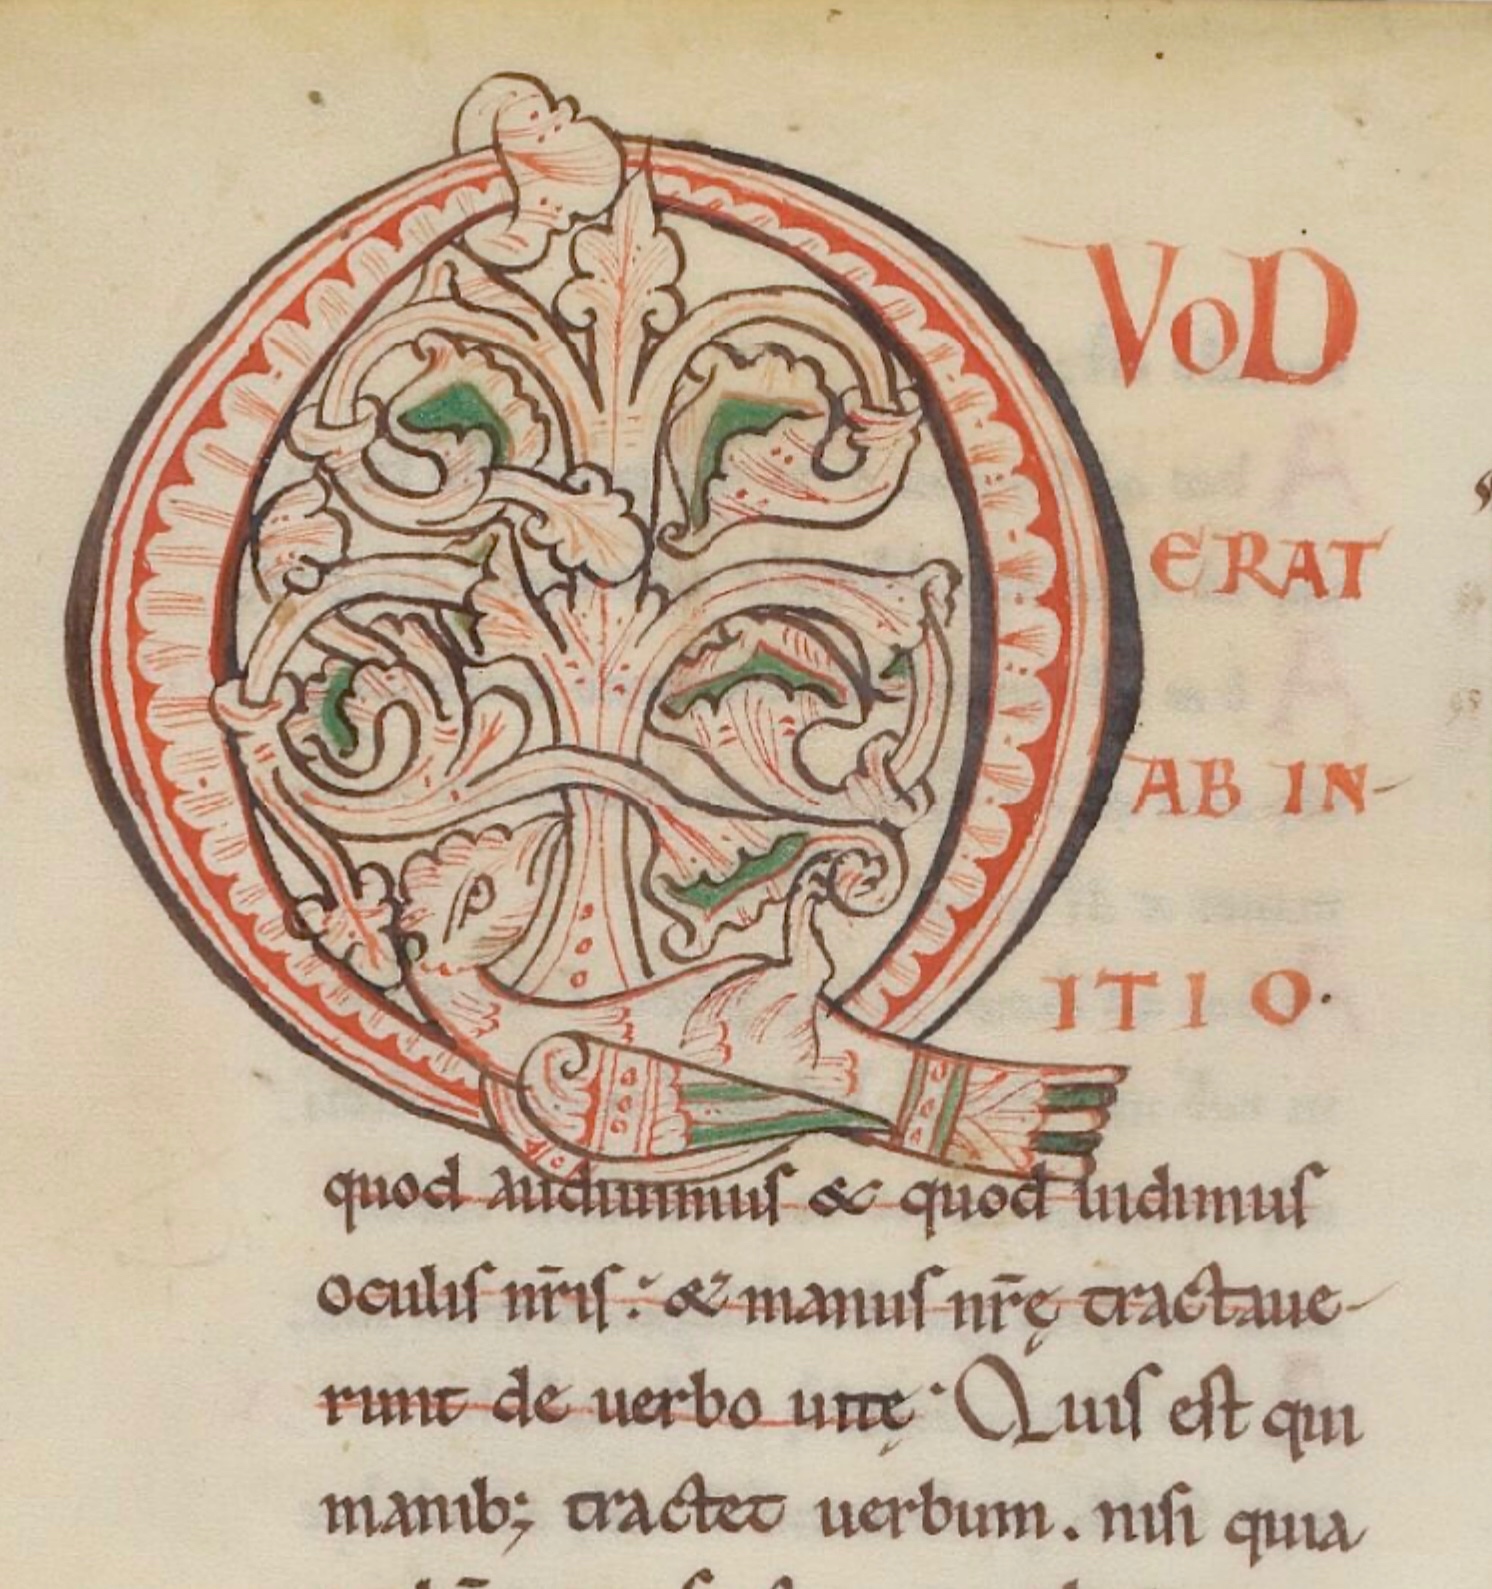 QVOD
ERAT
AB IN-
ITIO.
quod audiuimus & quod uidimus
oculis nr̄is: & manus nr̄ę tractaue-
runt de uerbo uitę· Quis est qui
manib; tractet uerbum. nisi quia